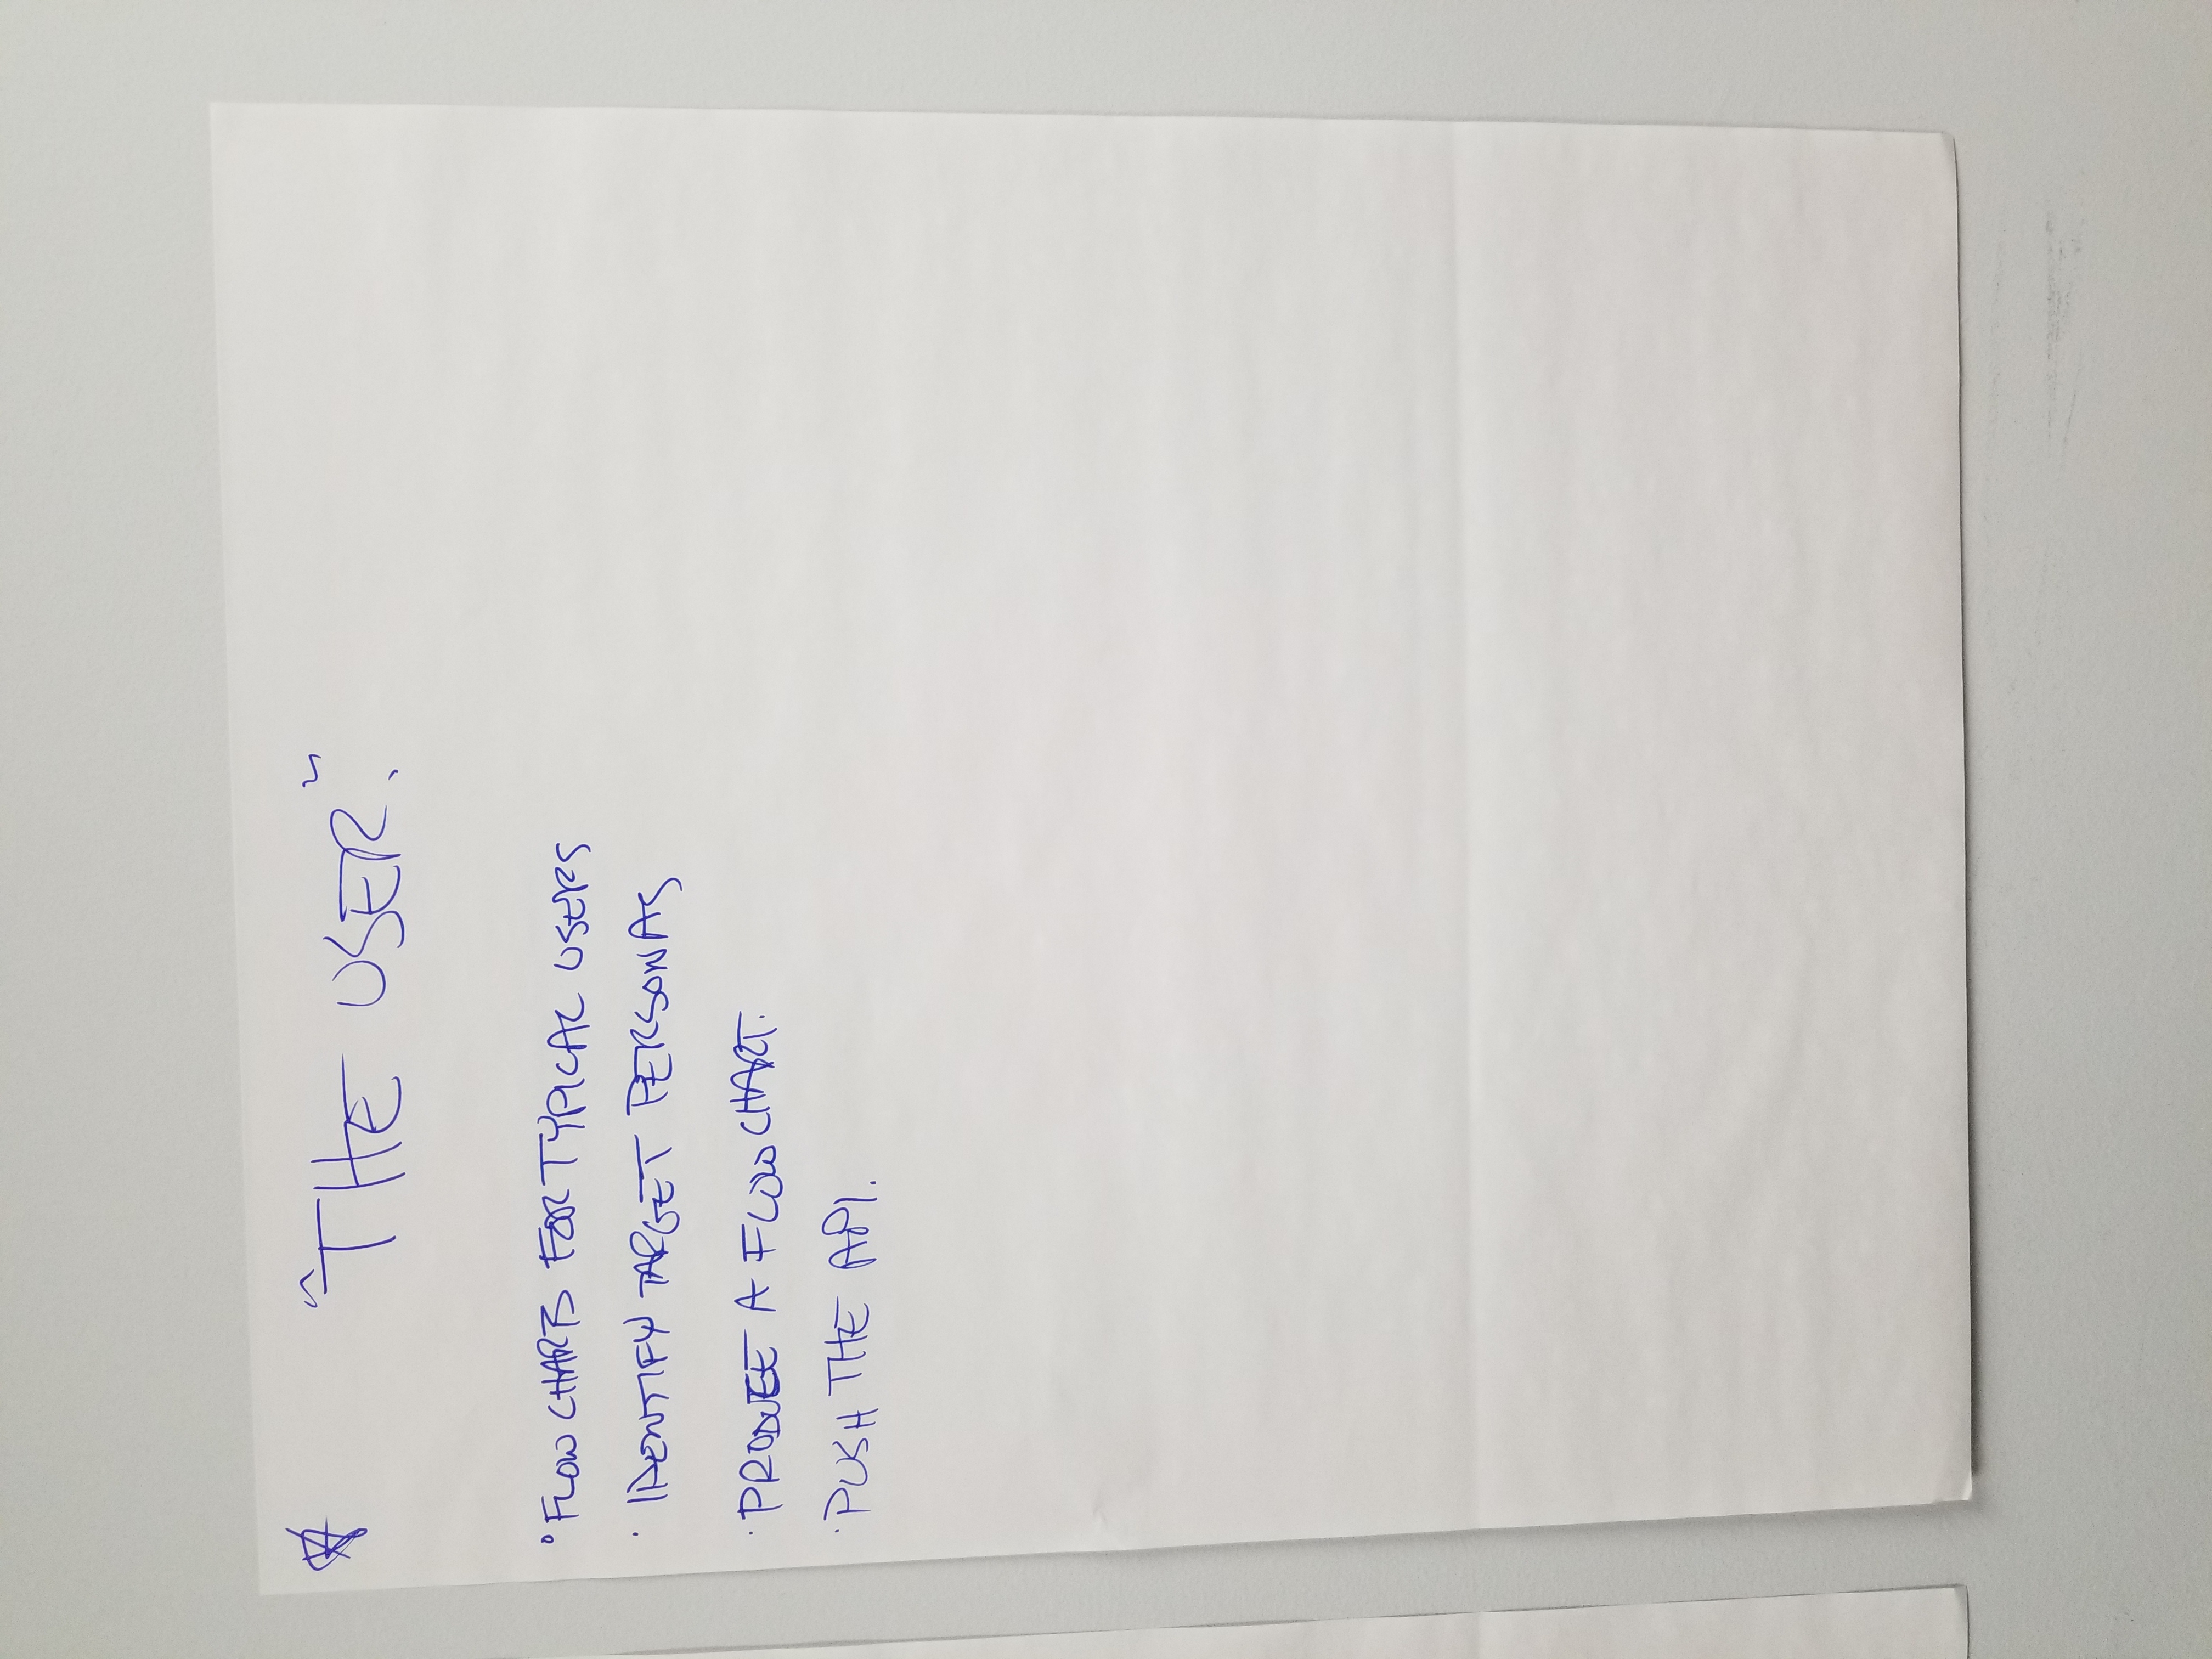 "THE USER."
° FLOW CHARTS FOR TYPICAL USERS
· IDENTIFY TARGET PERSONAS
· PRODUCE A FLOW CHART.
· PUSH THE API.